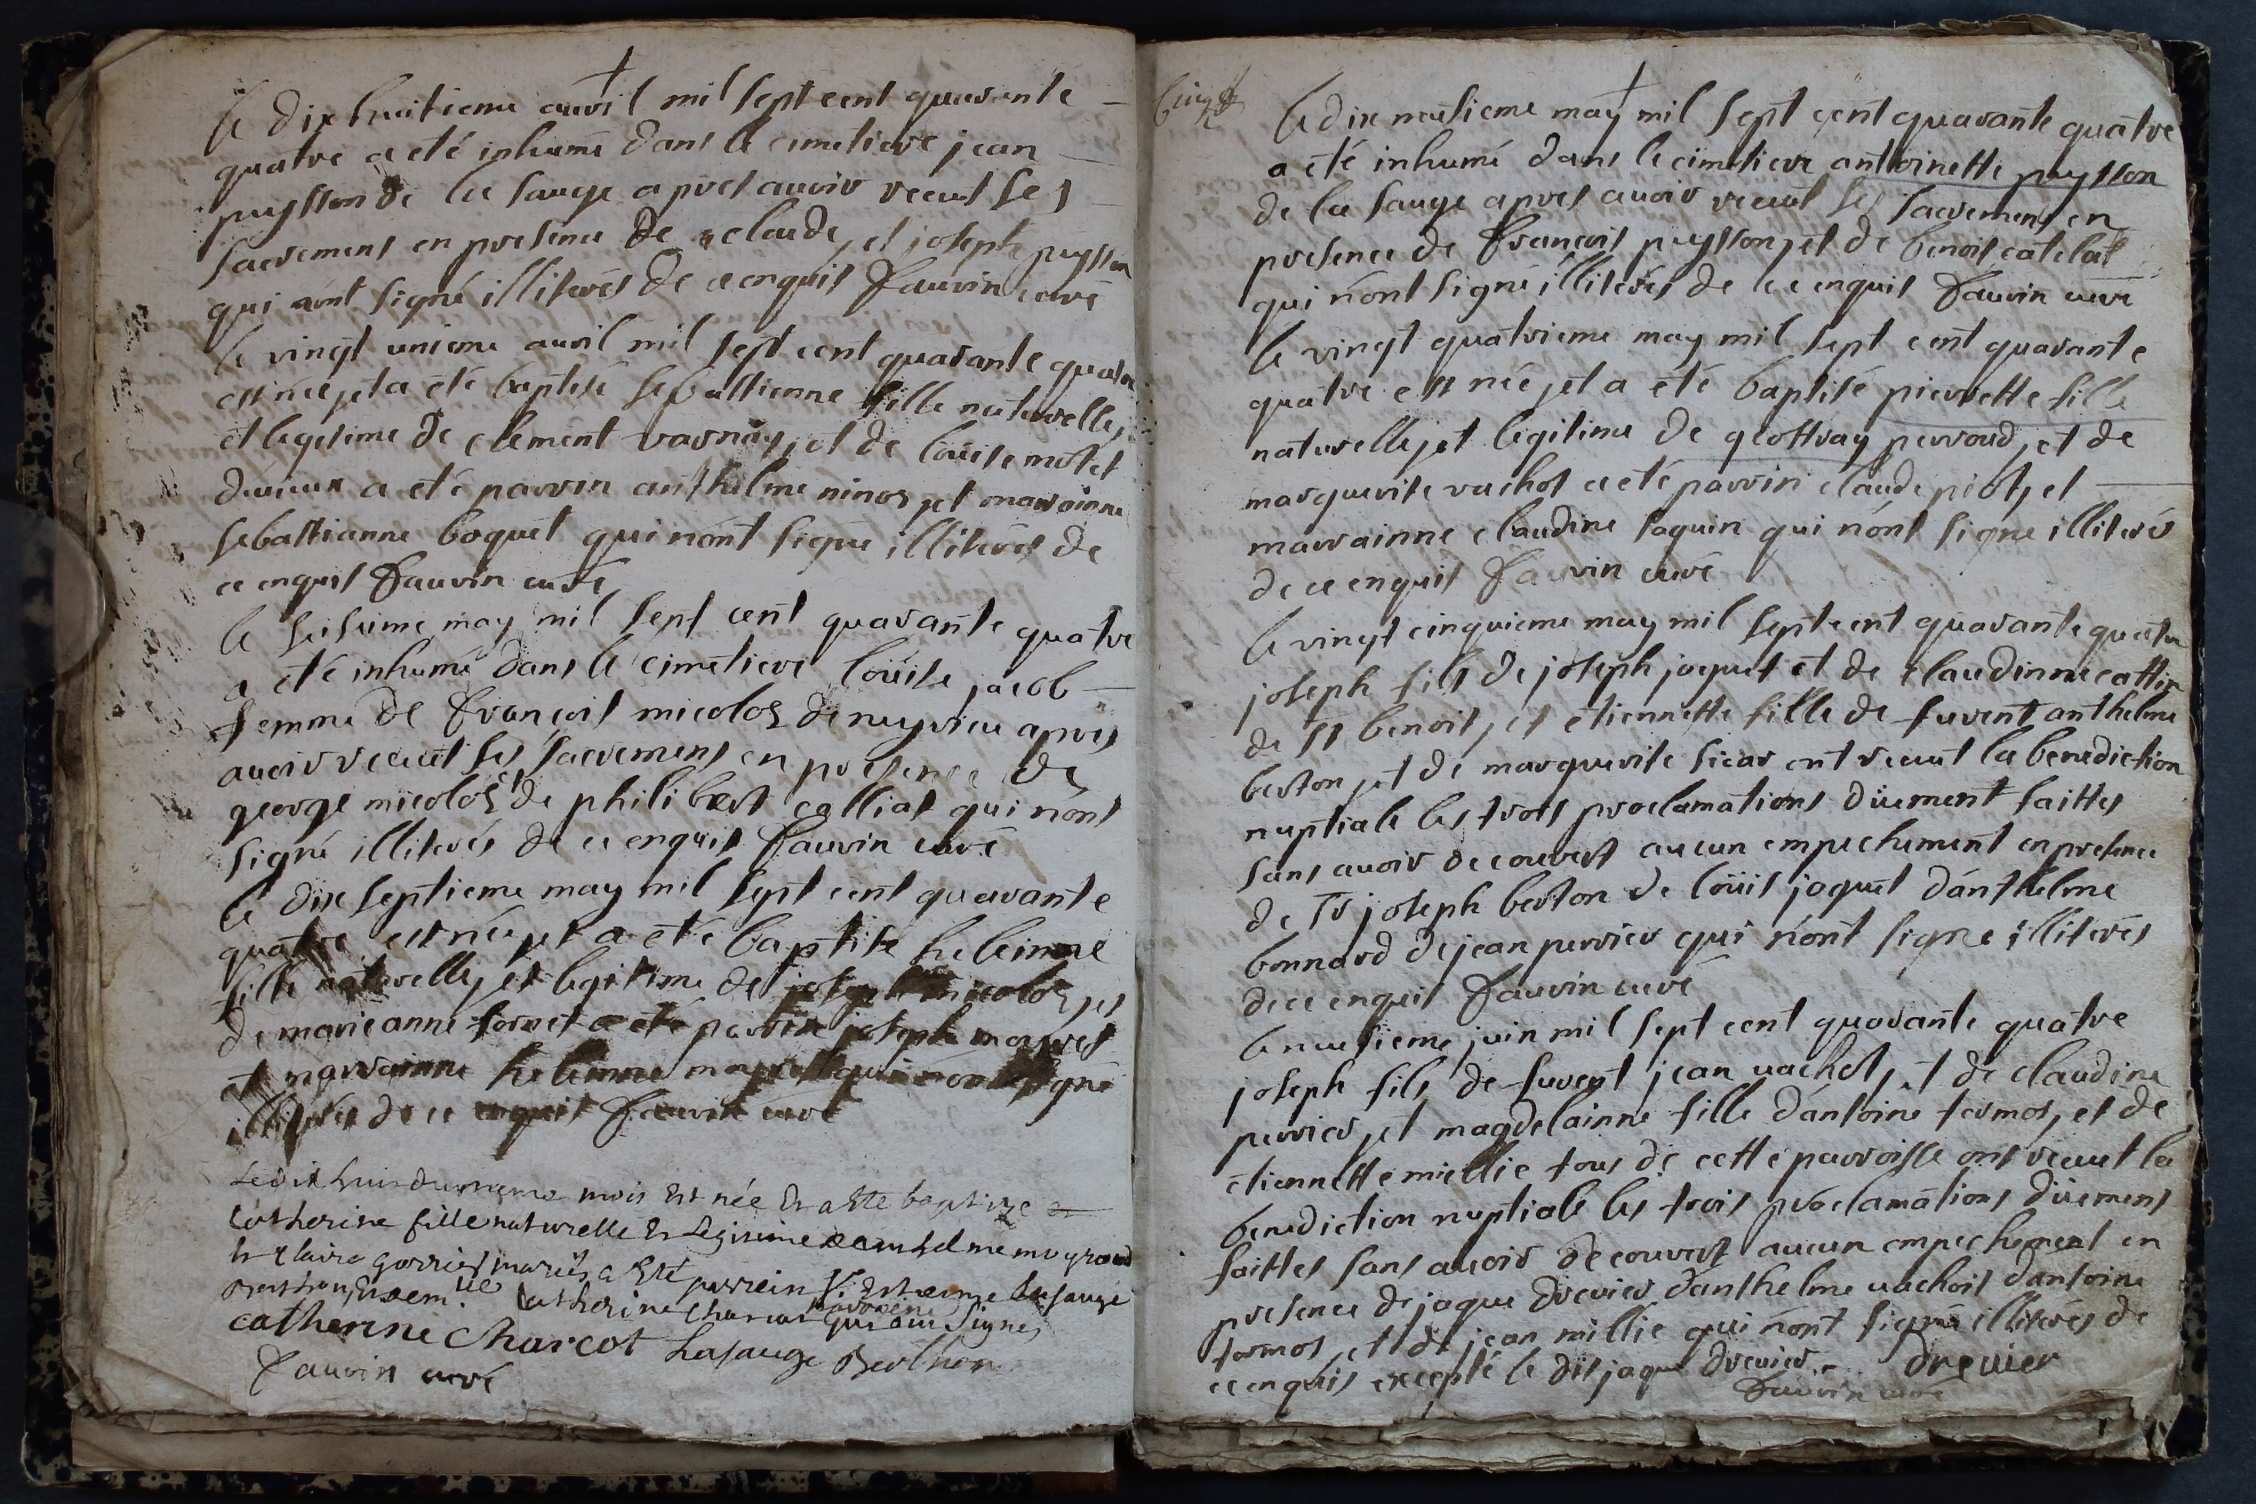 le dix huitieme avril mil sept cent quarante
quatre a eté inhumé dans le cimetiere jean
puysson de la sauge apres avoir recut ses
sacremens en presence de claude, et joseph puysson
qui n'ont signé illiterés de ce enquis fauvin curé
le vingt unieme avril mil sept cent quarante quatre
est née, et a été baptisé sebastienne fille naturelle,
et legitime de clement varnay, et de loüise motet
a eté parrin anthelme ninoz, et marrainne
sebastianne boquet qui n'ont signé illiterés de
ce enquis fauvin curé
le seisieme may mil sept cent quarante quatre
a eté inhumé dans le cimetiere loüise jacob
femme de françois micoloz de nuyrieu apres
avoir recut ses sacremens en presence de
george micoloz, de philibert calliat qui n'ont
signé illiterés de ce enquis fauvin curé
le dix septieme may mil sept cent quarante
quatre est née, et a eté baptisé heleinne
fille naturelle, et legitime de joseph micoloz, et
de marie anne fornet a eté parrin joseph
et marrainne heleinne qui n'ont signé
illiterés de ce enquis fauvin curé
Le dix huit du meme mois est née et a esté baptizée
catherine fille naturelle et legitime d'anthelme mugnard
et claire gorrier mariés, a esté parrein Sr. estienne lasauge
Berthon, et dem.lle Catherine Charcot marrene qui ont signé
catherine Charcot Lasauge Berthon
fauvin curé
le dix neufieme may mil sept cent quarante quatre
a eté inhumé dans le cimetiere antoinette puysson
de la sauge apres avoir recut ses sacremens en
presence de françois puysson, et de benoit catelat
qui n'ont signé illiterés de ce enquis fauvin curé
le vingt quatrieme may mil sept cent quarante
quatre est née, et a eté baptisé pierrette fille
naturelle, et legitime de geoffray perroud, et de
marguerite vachot a eté parrin claude piot, et
marrainne claudine saquin qui n'ont signé illiterés
de ce enquis fauvin curé
le vingt cinquieme may mil sept cent quarante quatre
joseph fils de joseph joquet et de claudinne cattin
de st benoit, et etiennette fille de fuvent anthelme
berton, et de marguerite sicar ont recut la benediction
nuptiale les trois proclamations düement faittes
sans avoir decouvert aucun empechement en presence
de sr joseph berton de loüis joquet d'anthelme
bonnard de jean perrier qui n'ont signé illiterés
de ce enquis fauvin curé
le neufieme juin mil sept cent quarante quatre
joseph fils de fuvent jean vachot, et de claudine
perrier, et magdelainne fille d'antoine tormos, et de
etiennette miellie tous de cette parroisse ont recut la
benediction nuptiale les trois proclamations düement
faittes sans avoir decouvert aucun empechement en
presence de jaque drevier d'anthelme vachot d'antoine
tormos, et de jean millie qui n'ont signé illiterés de
ce enquis excepté le dit jaque drevier. drevier
fauvin curé